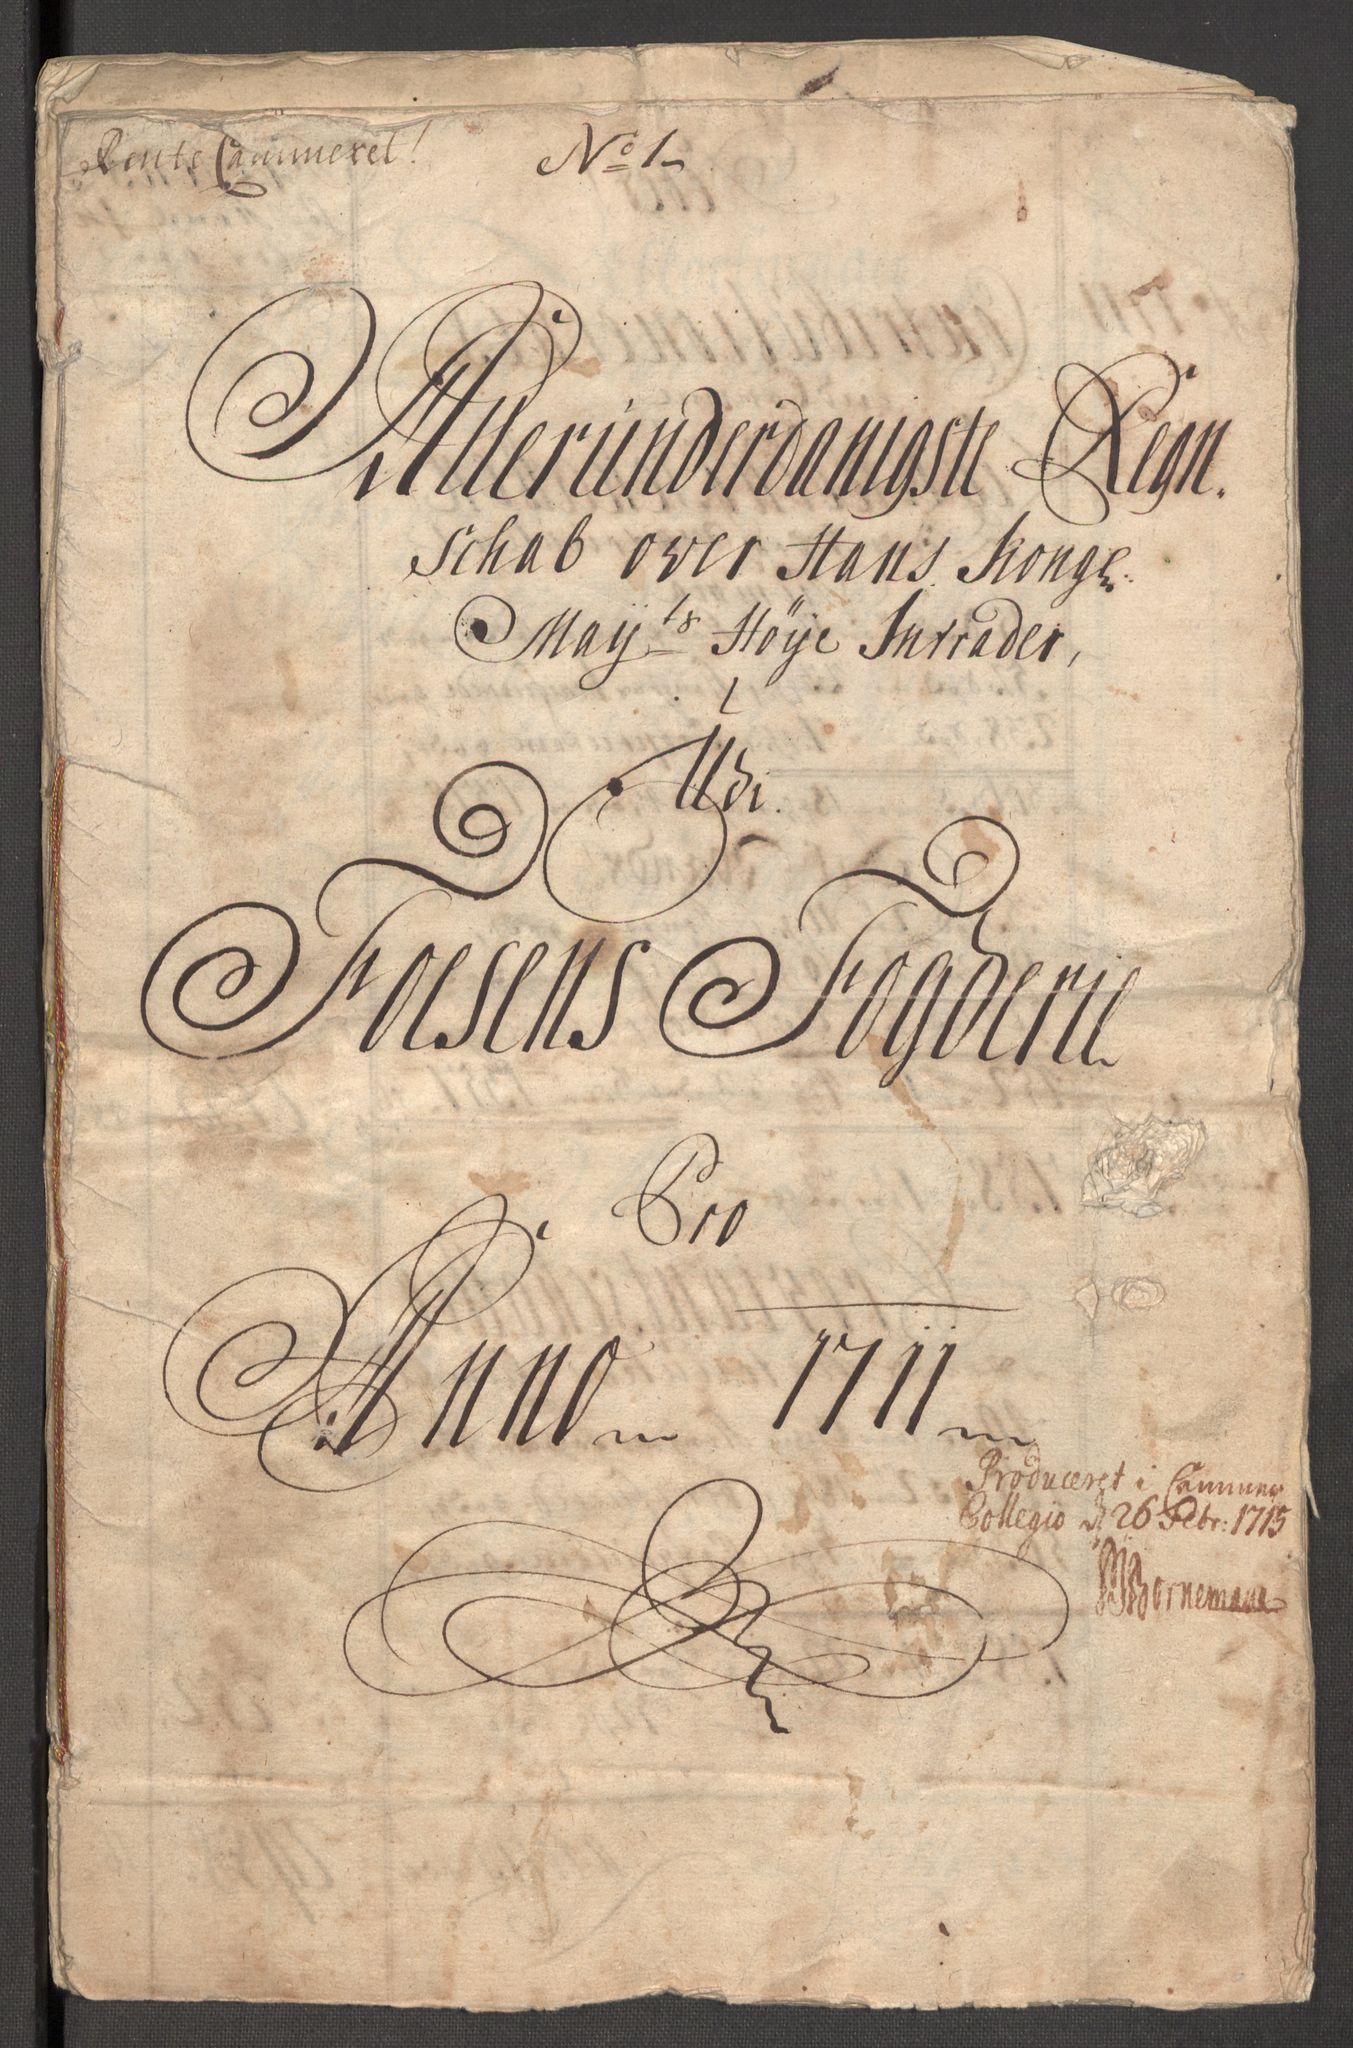 Rente Cammeret!
No 1
Alleründerdanigste Regn-
schab over Hans Kongl:
Mayts Höye Intrader,
Udi
Foesens Fogderie
Pro
Anno 1711
Produceret i Cammer
Collegio d 26 Febr: 1715
Bornemann